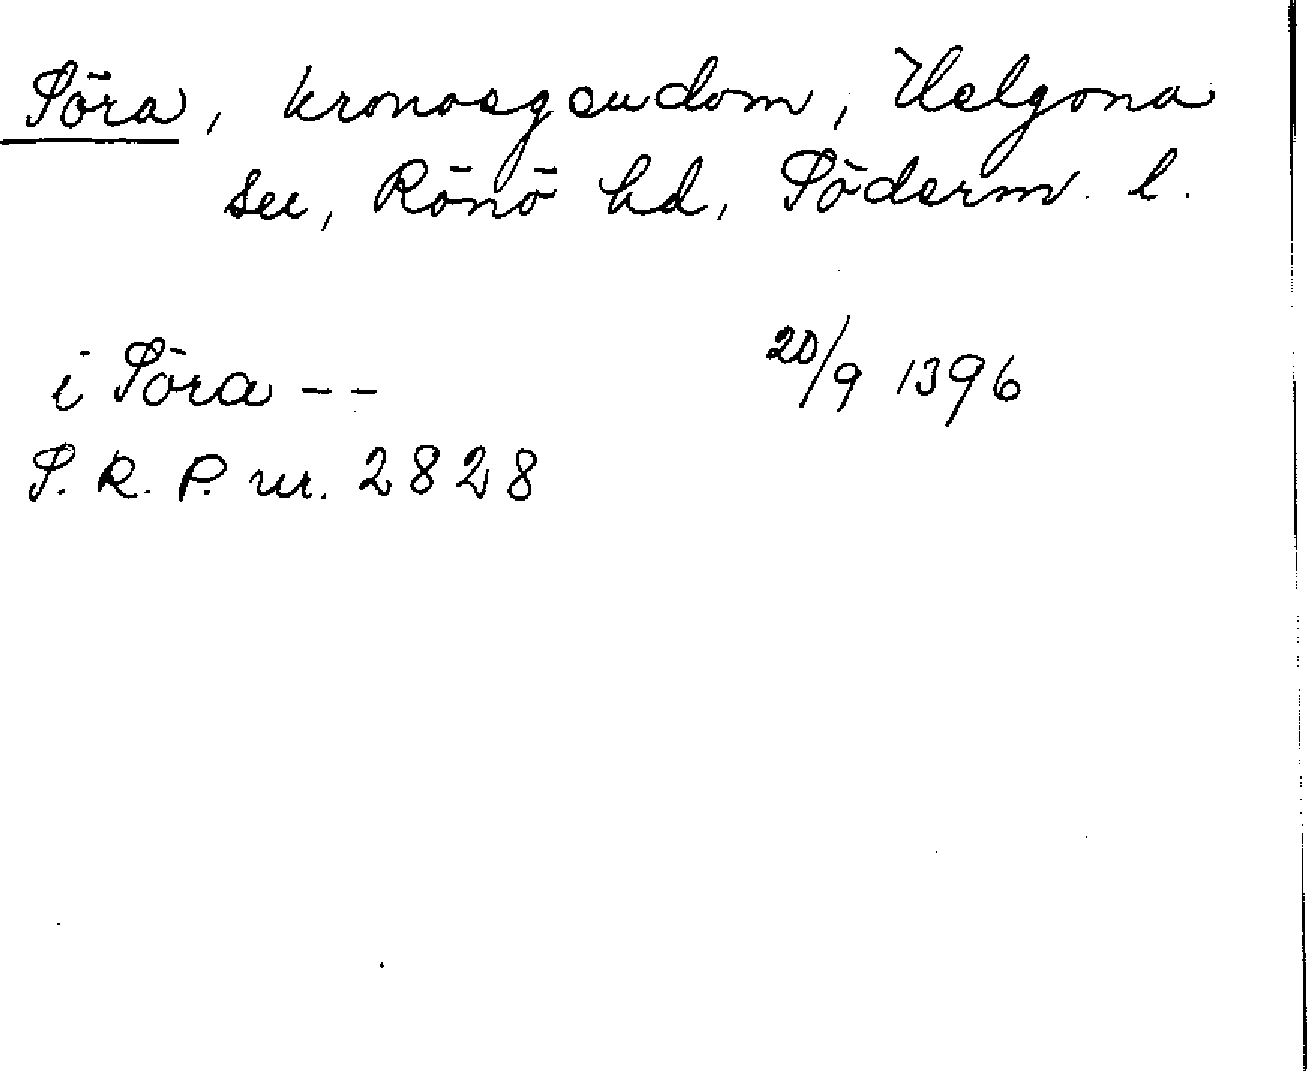 Söra, kronoegendom, Helgona
sn, Rönö hd, Söderm. l.
i Söra --   20/9 1396
S. R. P. nr. 2828